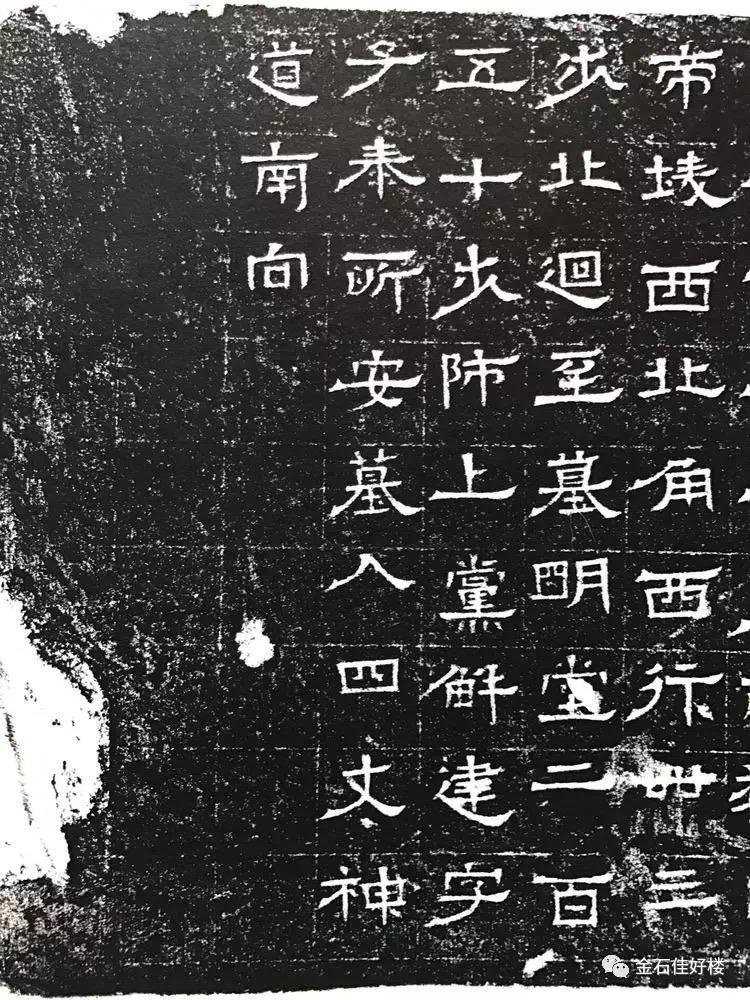 帝陵西北角西行卌三
步北迴至墓明堂二百
五十步師上黨解建字
子泰所安墓入四丈神
道南向
金石佳好楼